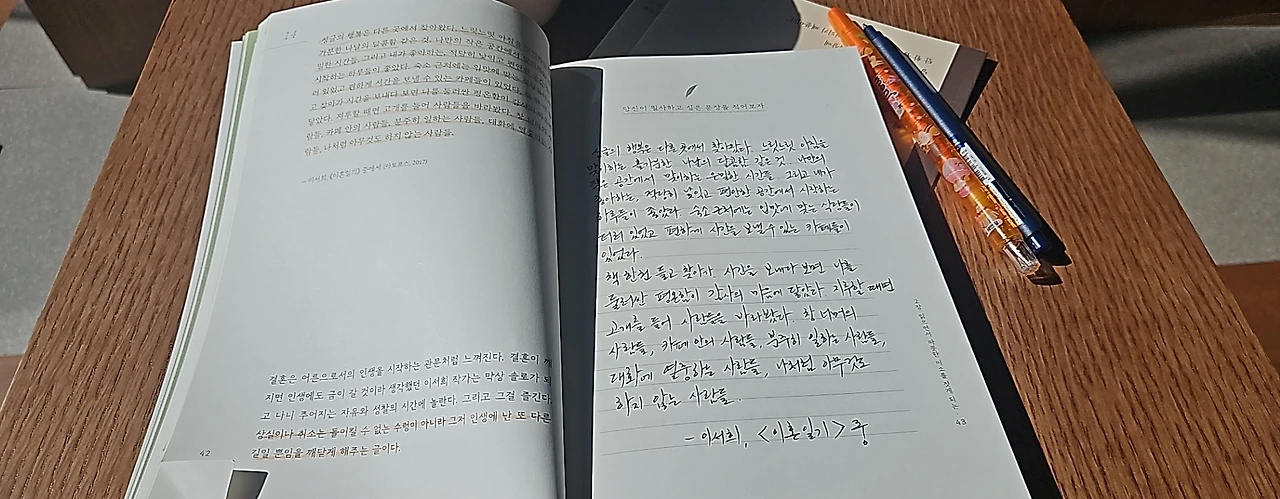 14
싱글의 행복은 다른 곳에서 찾아왔다. 느릿느릿 아침
가뿐한 나날의 달콤함 같은 것. 나만의 작은 공간에서
한 시간들. 그리고 내가 좋아하는, 적당히 낮이고 편
시작하는 하루들이 좋았다. 숙소 근처에는 입맛에 맞
러 있었고 편하게 시간을 보낼 수 있는 카페들이 있었다.
고 찾아가 시간을 보내다 보면 나를 둘러싼 평온함이
닿았다. 지루할 때면 고개를 들어 사람들을 바라봤다.
람들, 카페 안의 사람들, 분주히 일하는 사람들, 대화에
람들, 나처럼 아무것도 하지 않는 사람들.
―이서희, 《이혼일기》 중에서 (아토포스, 2017)
결혼은 어른으로서의 인생을 시작하는 관문처럼 느껴진다. 결혼이 깨
지면 인생에도 금이 갈 것이라 생각했던 이서희 작가는 막상 솔로가 되
고 나니 주어지는 자유와 성찰의 시간에 놀란다. 그리고 그걸 즐긴다.
상실이나 취소는 돌이킬 수 없는 수렁이 아니라 그저 인생에 난 또 다른
길일 뿐임을 깨닫게 해주는 글이다.
42
당신이 필사하고 싶은 문장을 적어보자
싱글의 행복은 다른 곳에서 찾아왔다. 느릿느릿 아침을
맞이하는 홀가분한 나날의 달콤함 같은 것. 나만의
작은 공간에서 맞이하는 은밀한 시간들. 그리고 내가
좋아하는, 적당히 낯익고 편안한 공간에서 시작하는
하루들이 좋았다. 숙소 근처에는 입맛에 맞는 식당들이
더러 있었고 편하게 시간을 보낼 수 있는 카페들이
있었다.
책 한 권 들고 찾아가 시간을 보내다 보면 나를
둘러싼 평온함이 감사의 마음에 닿았다. 지루할 때면
고개를 들어 사람들을 바라봤다. 창 너머의
사람들, 카페 안의 사람들, 분주히 일하는 사람들,
대화에 열중하는 사람들, 나처럼 아무것도
하지 않는 사람들.
- 이서희, <이혼일기> 중
43